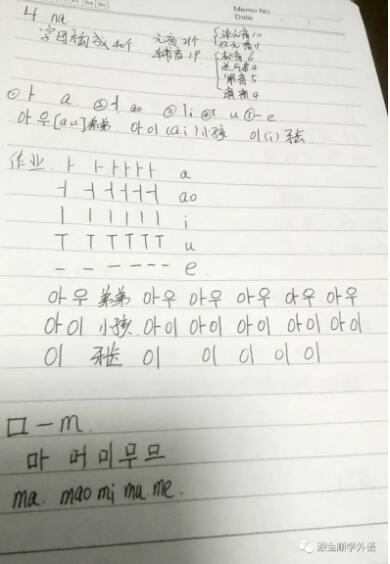 Memo No.
Date
4 na
字母构成 40个 元音 21个 单元音 10
双元音 11
辅音 19 松音
送气音 4
紧音 5
① ㅏ a ② ㅓ ao ③ ㅣ i ④ ㅜ u ⑤ ㅡ e
아우 [au] 弟弟 아이 (ai) 小孩 이 (i)
作业. ㅏ ㅏ ㅏ ㅏ ㅏ ㅏ a
ㅓ ㅓ ㅓ ㅓ ㅓ ㅓ ao
ㅣ ㅣ ㅣ ㅣ ㅣ ㅣ i
ㅜ ㅜ ㅜ ㅜ ㅜ ㅜ u
ㅡ ㅡ ㅡ ㅡ ㅡ ㅡ e
아우 弟弟 아우 아우 아우 아우 아우
아이 小孩 아이 아이 아이 아이 아이
이 이 이 이 이 이
ㅁ - m
마 머 미 무 므
ma. mao mi mu. me.
跟金顺学外语